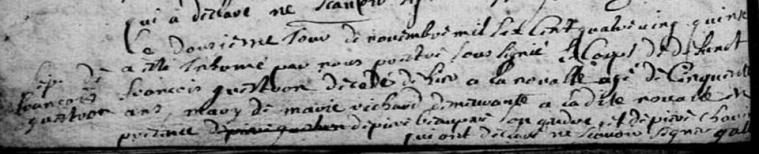 qui a declare ne scavoir
Le douzieme Jour de novembre mil six Cent quatre ving quinse
a esté Inhumé par nous prestre sous signé le Corps de defunct
sep. de francois questron decedé d'hier a la noualle agé de Cinquente
francois ans, mary de marie richard demeurante a la dite noualle En
questron presence de pierre beaupere son gendre et de pierre
qui ont declare ne scavoir signer